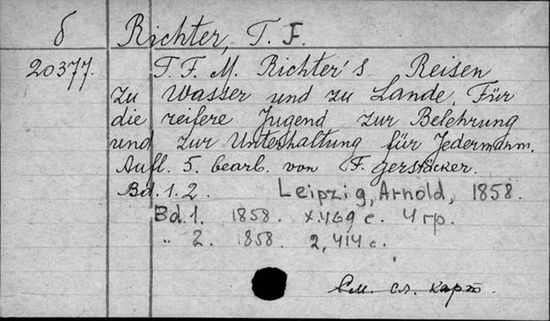 б Richter, T. F.
20377. T. F. M. Richter's Reisen
zu Wasser und zu Lande. Für
die reifere Jugend zur Belehrung
und zur Unterhaltung für Jedermann.
Aufl. 5. bearb. von F. Gerstäcker.
Bd. 1. 2. Leipzig, Arnold, 1858.
Bd. 1. 1858. X, 469 с. 4 гр.
" 2. 1858. 2, 414 с.
См. сл. карт.